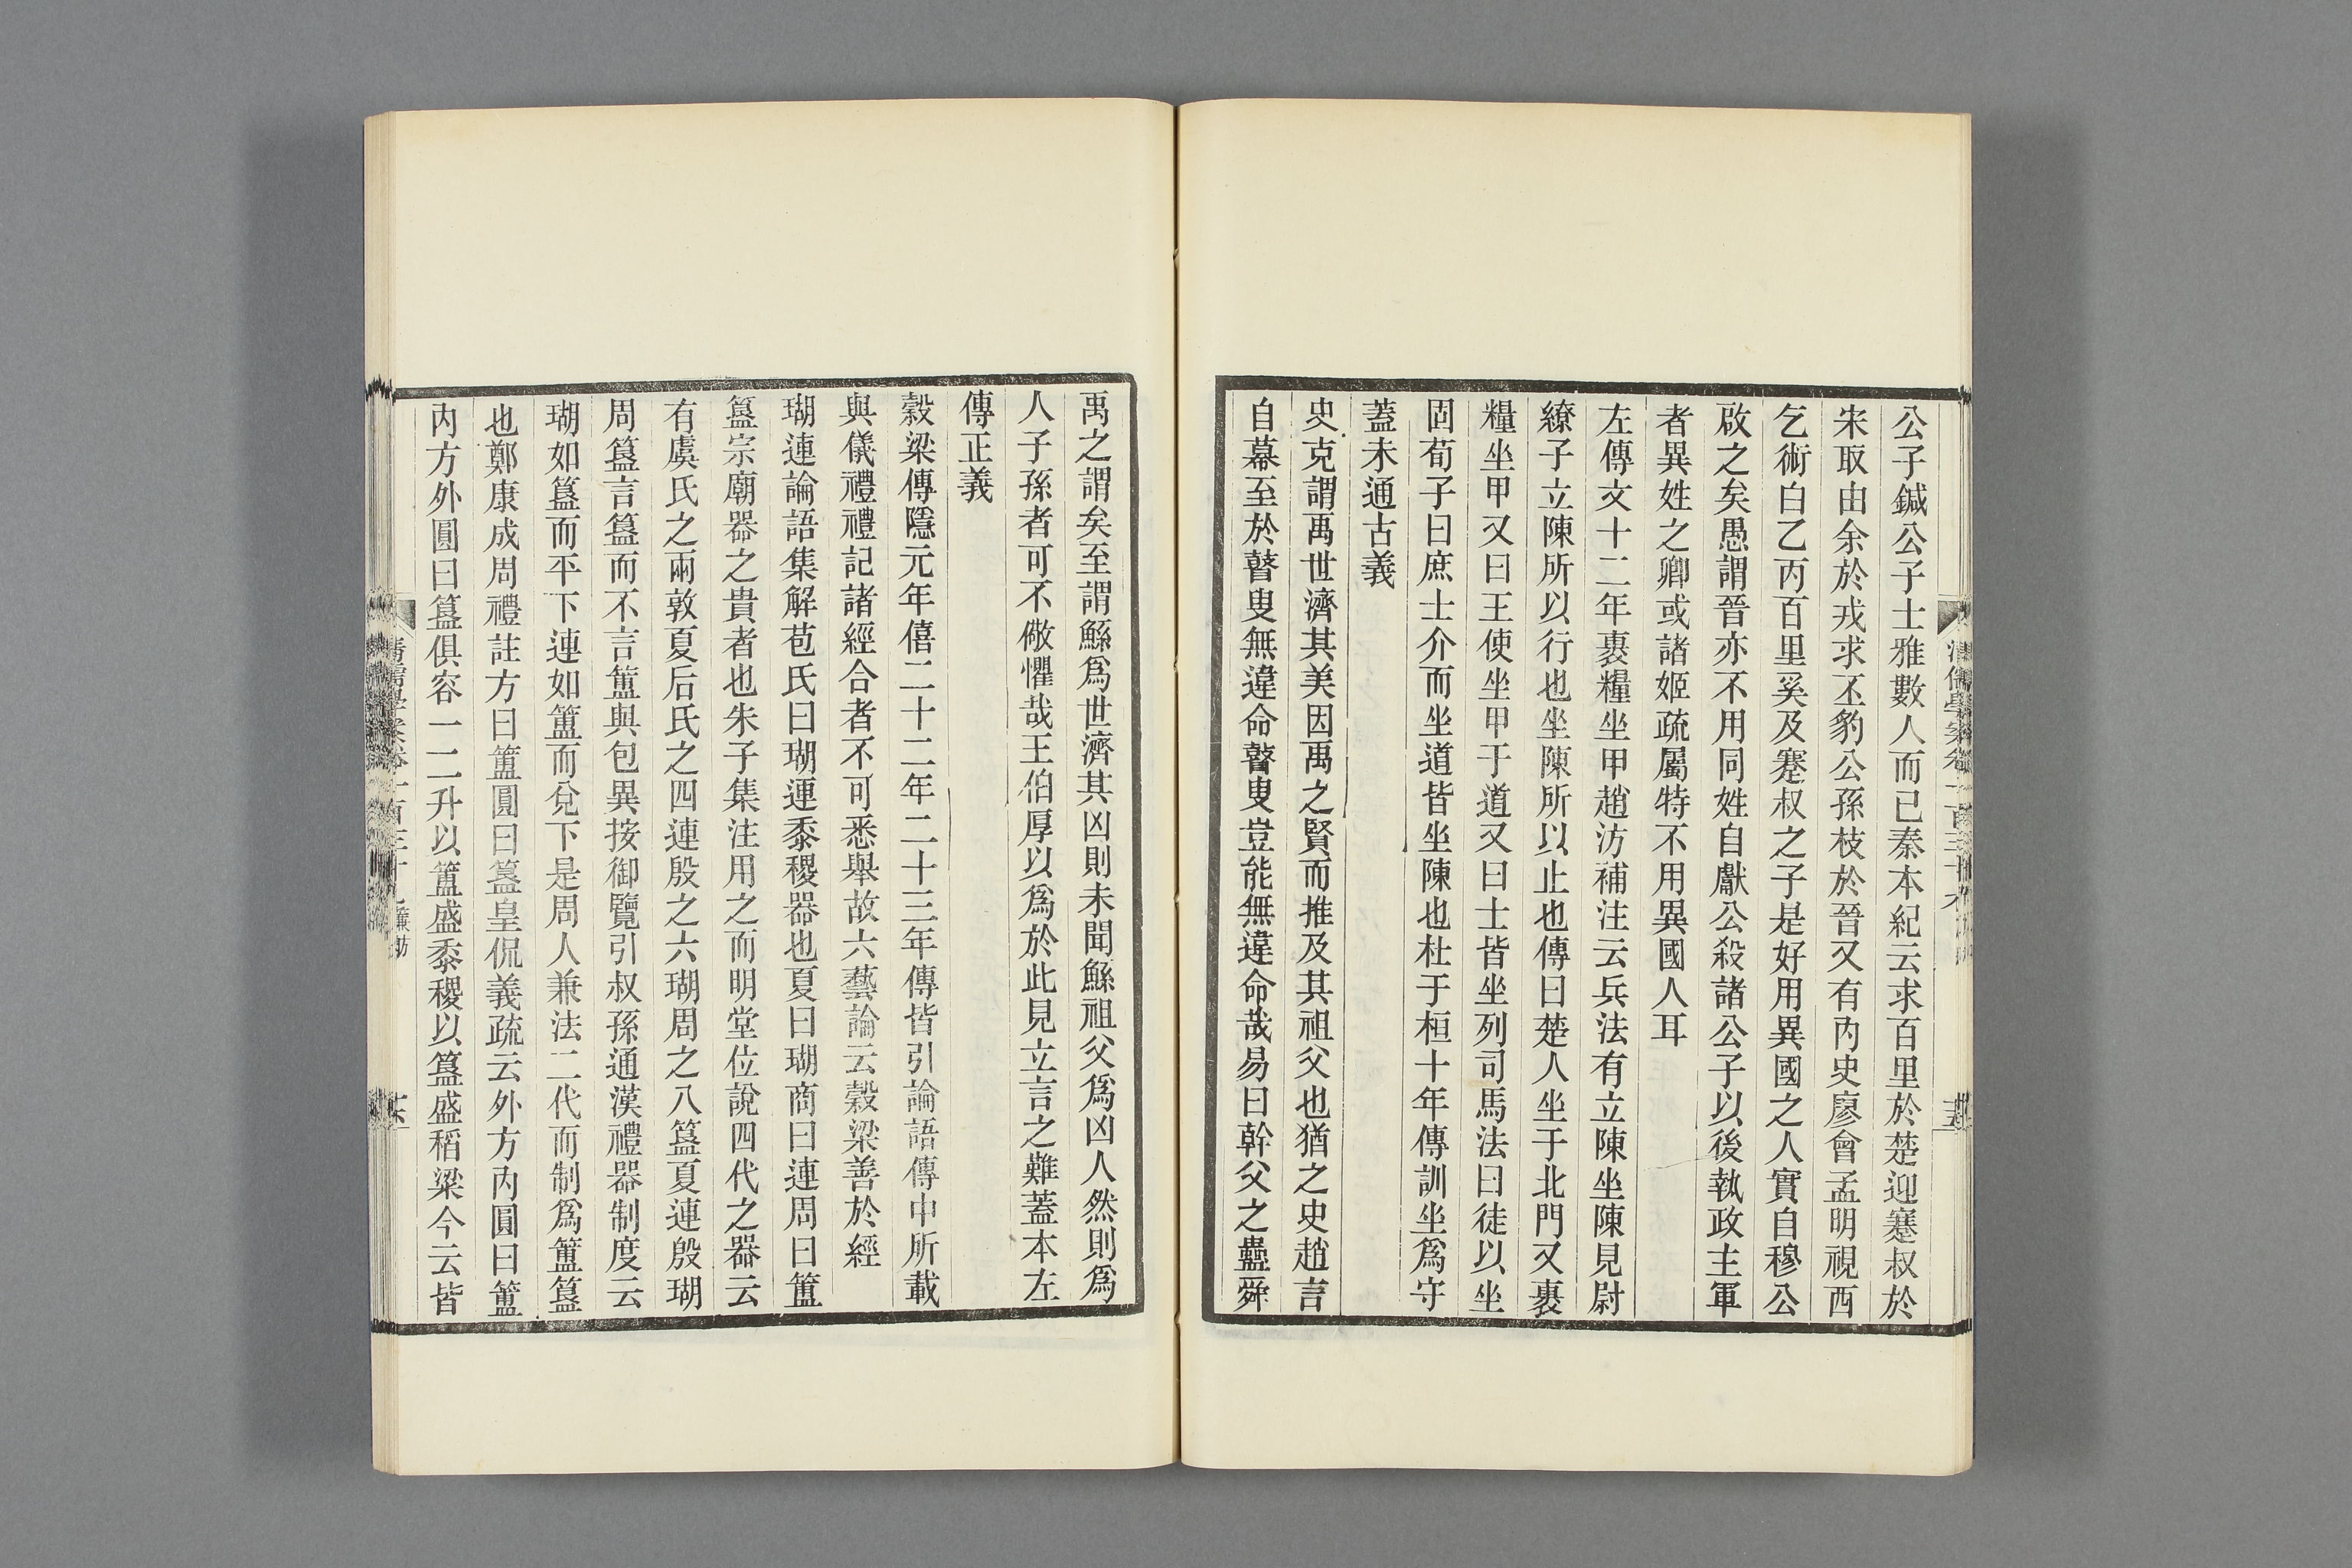 公子鍼公子士雅數人而已秦本紀云求百里於楚迎蹇叔於
宋取由余於戎求丕豹公孫枝於晉又有內史廖會孟明視西
乞術白乙丙百里奚及蹇叔之子是好用異國之人實自穆公
啟之矣愚謂晉亦不用同姓自獻公殺諸公子以後執政主軍
者異姓之卿或諸姬疏屬特不用異國人耳
左傳文十二年裹糧坐甲趙汸補注云兵法有立陳坐陳見尉
繚子立陳所以行也坐陳所以止也傳曰楚人坐于北門又裹
糧坐甲又曰王使坐甲于道又曰士皆坐列司馬法曰徒以坐
固荀子曰庶士介而坐道皆坐陳也杜于桓十年傳訓坐爲守
蓋未通古義
史克謂禹世濟其美因禹之賢而推及其祖父也猶之史趙言
自幕至於瞽叟無違命瞽叟豈能無違命哉易曰幹父之蠱舜
禹之謂矣至謂鯀爲世濟其凶則未聞鯀祖父爲凶人然則爲
人子孫者可不儆懼哉王伯厚以爲於此見立言之難蓋本左
傳正義
穀梁傳隱元年僖二十二年二十三年傳皆引論語傳中所載
與儀禮禮記諸經合者不可悉舉故六藝論云穀梁善於經
瑚連論語集解苞氏曰瑚連黍稷器也夏曰瑚商曰連周曰簠
簋宗廟器之貴者也朱子集注用之而明堂位說四代之器云
有虞氏之兩敦夏后氏之四連殷之六瑚周之八簋夏連殷瑚
周簋言簋而不言簠與包異按御覽引叔孫通漢禮器制度云
瑚如簋而平下連如簠而兌下是周人兼法二代而制爲簠簋
也鄭康成周禮註方曰簠圓曰簋皇侃義疏云外方內圓曰簠
內方外圓曰簋俱容一二升以簠盛黍稷以簋盛稻粱今云皆